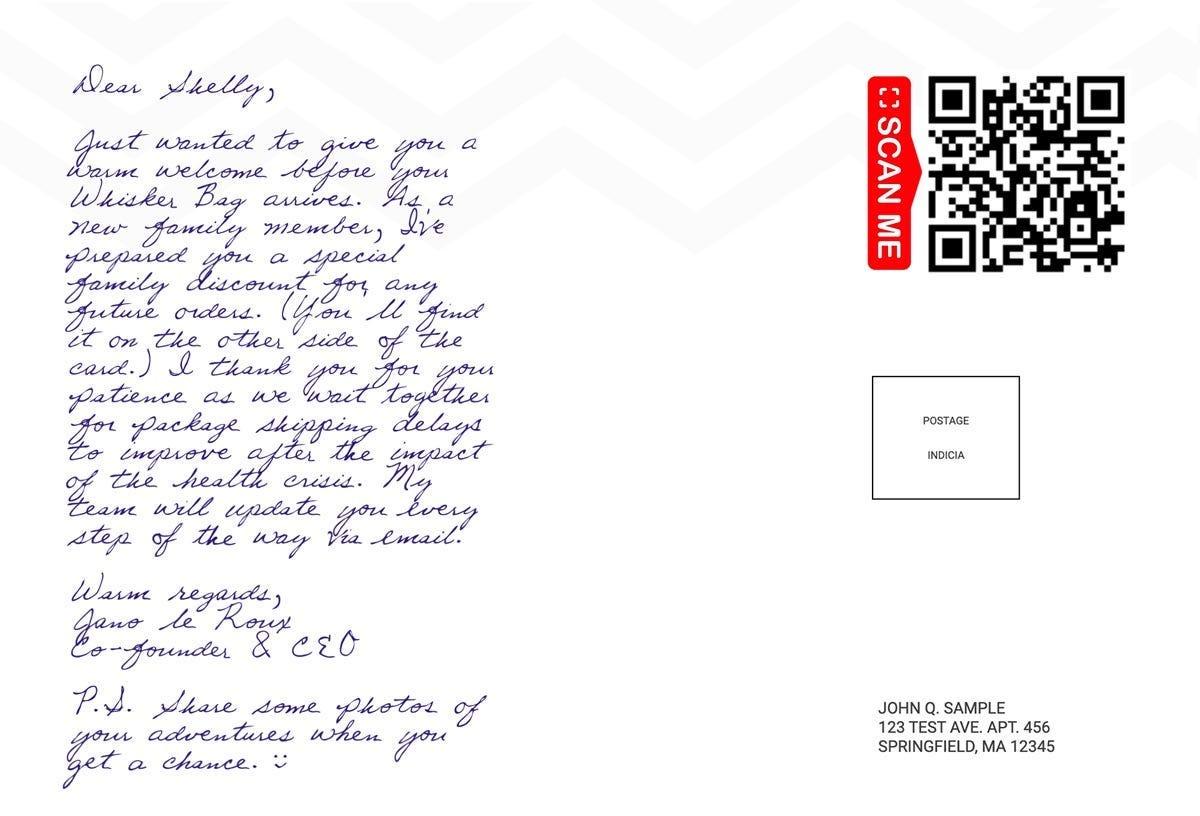 Dear Shelly,
Just wanted to give you a
warm welcome before your
Whisker Bag arrives. As a
new family member, I've
prepared you a special
family discount for any
future orders. (You ll find
it on the other side of the
card.) I thank you for your
patience as we wait together
for package shipping delays
to improve after the impact
of the health crisis. My
team will update you every
step of the way via email.
Warm regards,
Jano le Roux
Co-founder & CEO
P.S. Share some photos of
your adventures when you
get a chance. :)
SCAN ME
POSTAGE
INDICIA
JOHN Q. SAMPLE
123 TEST AVE. APT. 456
SPRINGFIELD, MA 12345